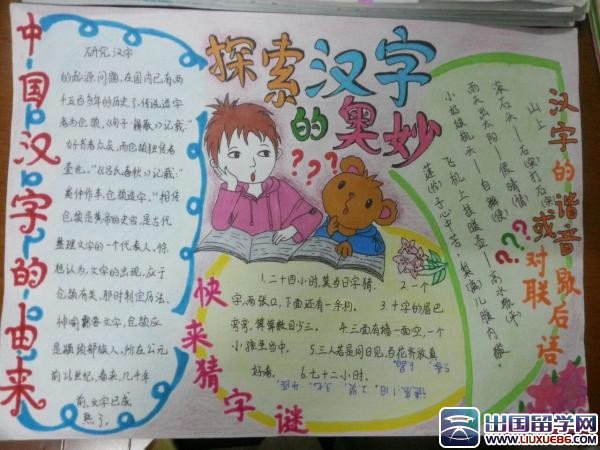 探索汉字
的奥妙
中国汉字的由来
研究汉字
的起源问题,在国内已有两
千五百多年的历史了,传说造字
者为仓颉,《荀子·解蔽》记载:"
好书者众矣,而仓颉独传者
壹也。"《吕氏春秋》记载:"
奚仲作车,仓颉造字。"相传
仓颉是黄帝的史官,是古代
整理文字的一个代表人,惊
想认为,文字的出现,应于
仓颉有关,那时制定历法、
神喻需要文字,仓颉应
是颛顼部族人,所在公元
前26世纪,看来,几千年
前,文字已成
熟了。
快来猜字谜
1.二十四小时,莫当日字猜,
2.一个
字,两张口,下面还有一条狗。
3.十字的眉巴
弯弯,算算数目少三。
4.三面有墙一面空,一个
小孩坐当中。
5.三人若是同日见,百花齐放真
好看。
6.七十二小时。
汉字的谐音歇后语
或对联
???
???
山上滚石头——石(实)打石(实)
雨天出太阳——假晴(情)
小姑娘梳头——自辫(便)
飞机上挂暖壶——高水瓶(平)
莲(怜)子心中苦,梨(离)儿腹内酸。
出国留学网
WWW.LIUXUE86.COM